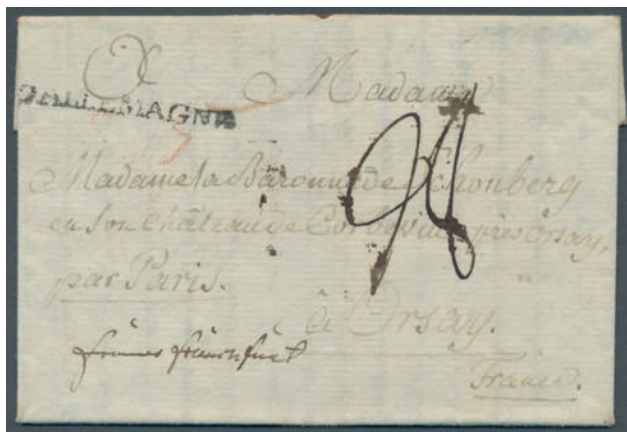 Madame
D'ALLEMAGNE
24
Madame la Baronne de Schonberg
en son Château de Corbeville près Orsay,
par Paris.
à Orsay.
franco francfurt
France.